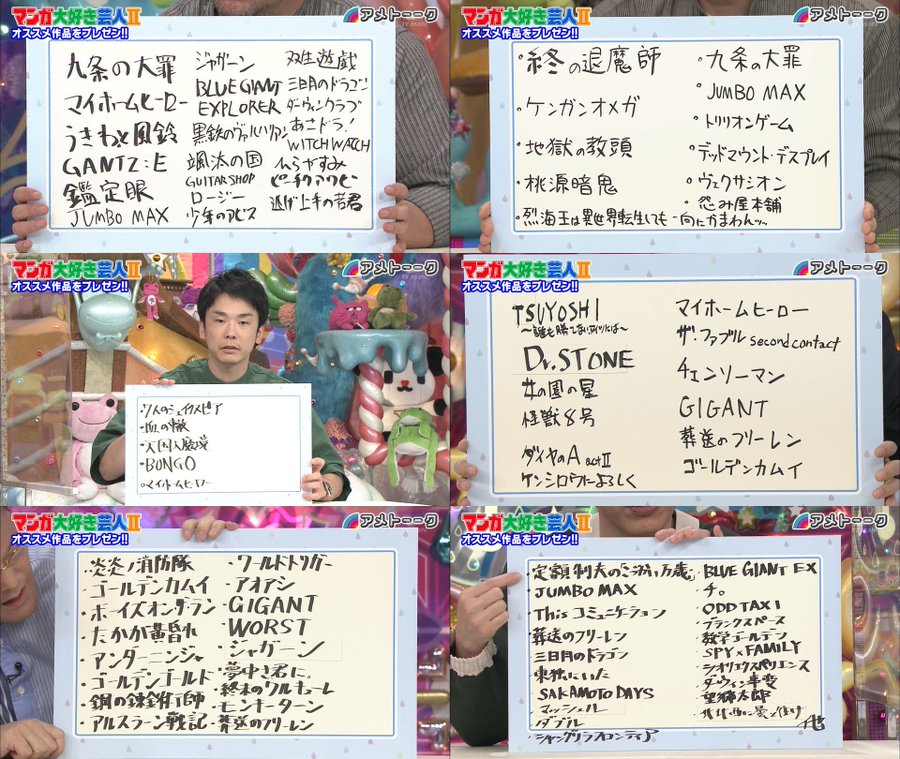 マンガ大好き芸人II
オススメ作品をプレゼン!!
アメトーーク
九条の大罪
マイホームヒーロー
うきわと風鈴
GANTZ:E
鑑定眼
JUMBO MAX
ジャガーン
BLUE GIANT
EXPLORER
黒鉄のヴァルハリアン
颯汰の国
GUITAR SHOP
ロージー
少年のアビス
双生遊戯
三日月のドラゴン
ダーウィンクラブ
あさドラ!
WITCH WATCH
ひらやすみ
ピーチクアワビ
逃げ上手の若君
マンガ大好き芸人II
オススメ作品をプレゼン!!
アメトーーク
・終の退魔師
・ケンガンオメガ
・地獄の教頭
・桃源暗鬼
・烈海王は異世界転生しても一向にかまわんッ…
・九条の大罪
・JUMBO MAX
・トリリオンゲーム
・デッドマウント・デスプレイ
・ヴェクサシオン
・怨み屋本舗
マンガ大好き芸人II
オススメ作品をプレゼン!!
アメトーーク
・7人のシェイクスピア
・血の轍
・天国大魔境
・BUNGO
・マイホームヒーロー
マンガ大好き芸人II
オススメ作品をプレゼン!!
アメトーーク
TSUYOSHI
Dr.STONE
女の園の星
怪獣8号
ダイヤのA actII
ケンシロウによろしく
マイホームヒーロー
ザ・ファブル second contact
チェンソーマン
GIGANT
葬送のフリーレン
ゴールデンカムイ
マンガ大好き芸人II
オススメ作品をプレゼン!!
アメトーーク
・炎炎ノ消防隊
・ゴールデンカムイ
・ボーイズオンザラン
・たかが黄昏れ
・アンダーニンジャ
・ゴールデンゴールド
・鋼の錬金術師
・アルスラーン戦記
・ワールドトリガー
・アオアシ
・GIGANT
・WORST
・ジャガーン
・夢中さ、君に。
・終末のワルキューレ
・モンキーターン
・葬送のフリーレン
マンガ大好き芸人II
オススメ作品をプレゼン!!
アメトーーク
・定額制夫の「こづかい万歳」
・JUMBO MAX
・Thisコミュニケーション
・葬送のフリーレン
・三日月のドラゴン
・東独にいた
・SAKAMOTO DAYS
・マッシュル
・ダブル
・シャングリラフロンティア
・BLUE GIANT EX
・チ。
・ODD TAXI
・ブランクスペース
・数学ゴールデン
・SPY×FAMILY
・シオリエクスペリエンス
・ダーウィン事変
・望郷太郎
他